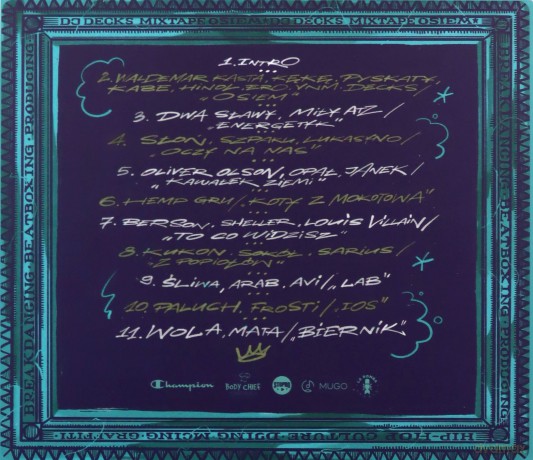 DJ DECKS MIXTAPE OSIEM DJ DECKS MIXTAPE OSIEM
1. INTRO
2. WALDEMAR KASTA, KĘKĘ, PYSKATY,
KABE, HINOL, ERO, VNM, DECKS/
„OSIEM”
3. DWA SŁAWY, MIŁY ATZ/
„ENERGETYK”
4. SŁOŃ, SZPAKU, LUKASYNO/
„OCZY NA NAS”
5. OLIVER OLSON, OPAŁ, JANEK/
„KAWAŁEK ZIEMI”
6. HEMP GRU/„KOTY Z MOKOTOWA”
7. BERSON, SHELLER, LOUIS VILLAIN/
„TO CO WIDZISZ”
8. KUKON, SOKÓŁ, SARIUS/
„Z POPIOŁÓW”
9. ŚLIWA, ARAB, AVI/„LAB”
10. PALUCH, FROSTI/„IOS”
11. WOLA, MATA/„BIERNIK”
Champion
BODY CHIEF
MUGO
BREAKDANCING · BEATBOXING · PRODUCING
BREAKDANCING · BEATBOXING · PRODUCING
HIP-HOP CULTURE · DJING · MCING · GRAFFITI